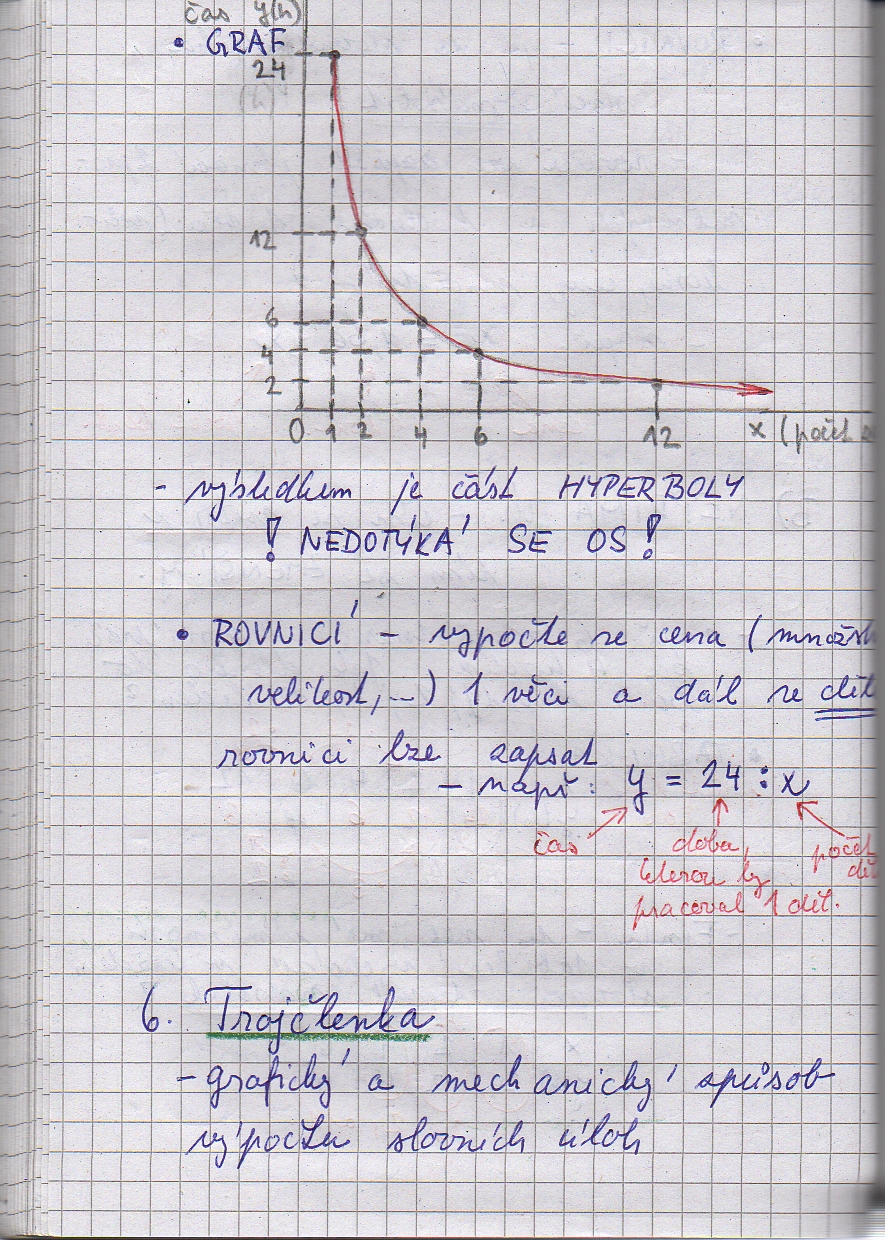 čas y(h)
• GRAF
24
12
6
4
2
0 1 2 4 6 12 x (počet
- výsledkem je část HYPERBOLY
! NEDOTÝKÁ SE OS!
• ROVNICÍ - vypočte se cena (množst
velikost, ...) 1 věci a dál se děl
rovnici lze zapsat
- např: y = 24 : x
čas doba, počet
kterou by děl
pracoval 1 děl.
6. Trojčlenka
- grafický a mechanický způsob
výpočtu slovních úloh